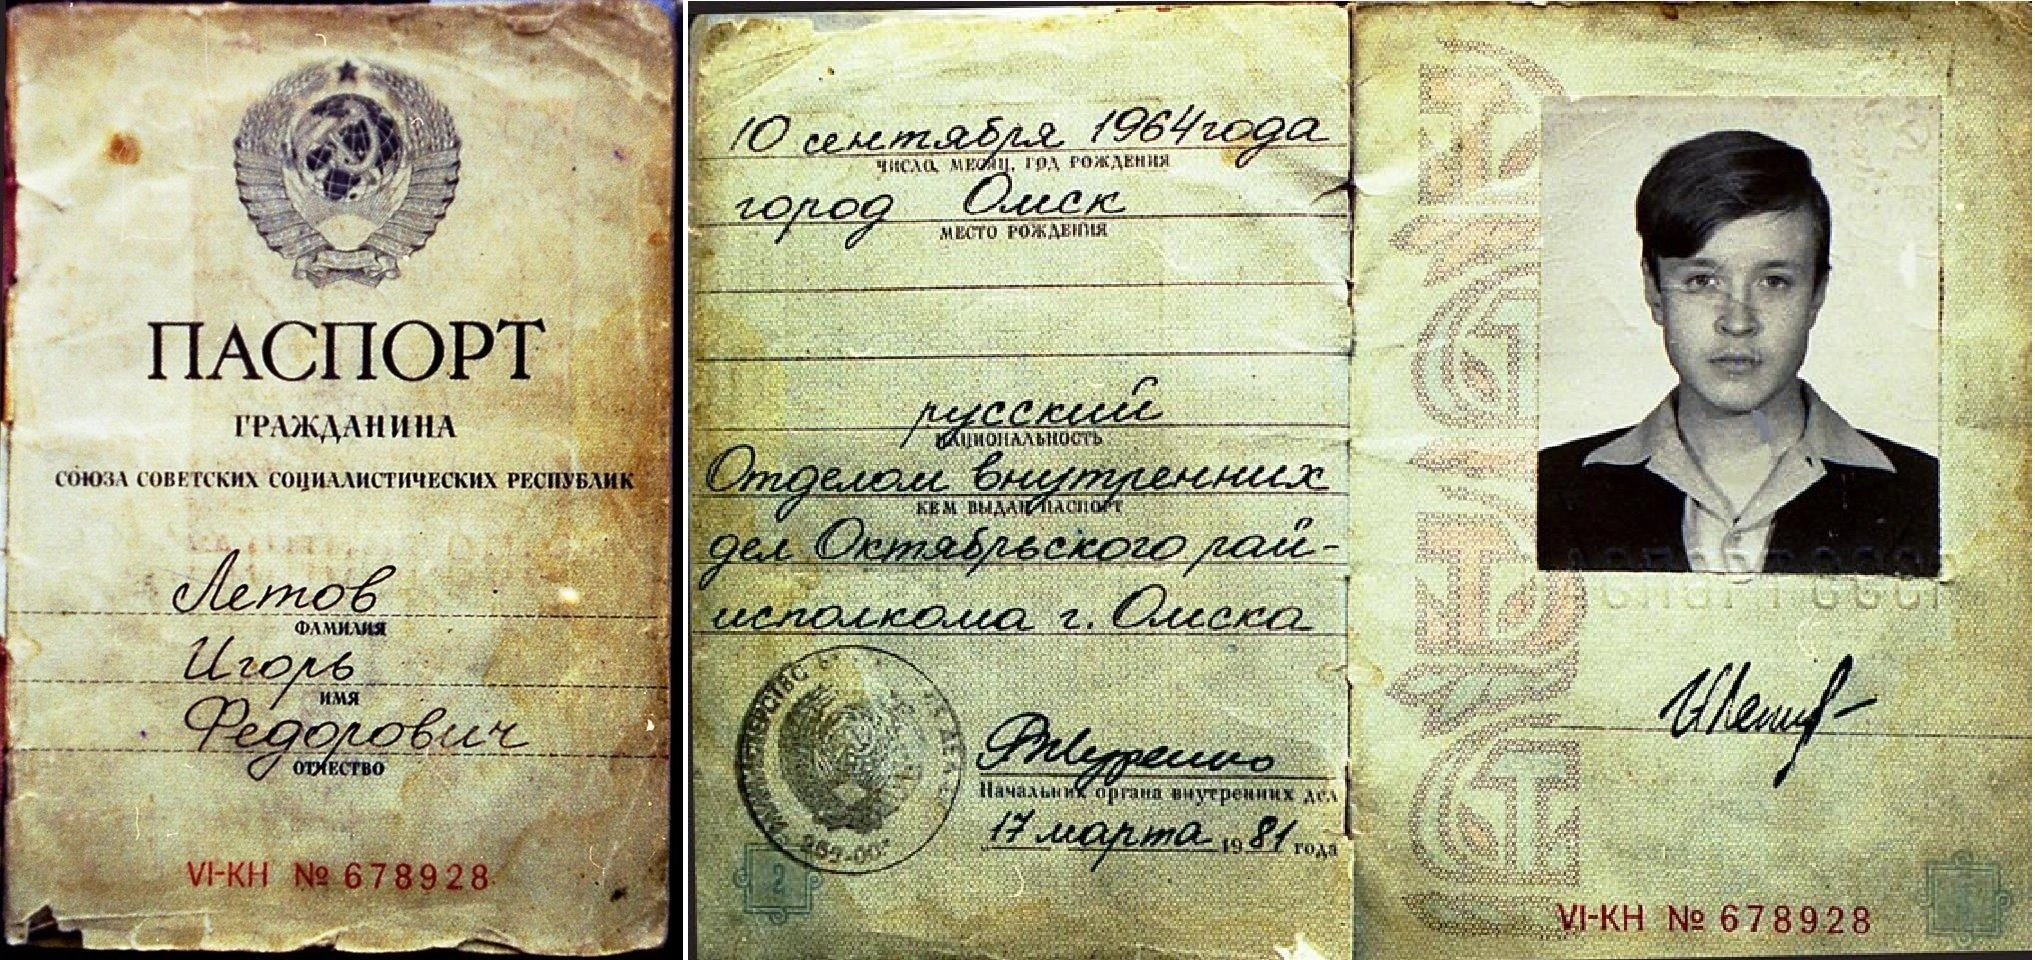 ПАСПОРТ
ГРАЖДАНИНА
СОЮЗА СОВЕТСКИХ СОЦИАЛИСТИЧЕСКИХ РЕСПУБЛИК
Летов
ФАМИЛИЯ
Игорь
ИМЯ
Федорович
ОТЧЕСТВО
VI-КН № 678928
10 сентября 1964 года
ЧИСЛО, МЕСЯЦ, ГОД РОЖДЕНИЯ
город Омск
МЕСТО РОЖДЕНИЯ
русский
НАЦИОНАЛЬНОСТЬ
Отделом внутренних
КЕМ ВЫДАН ПАСПОРТ
дел Октябрьского рай-
исполкома г. Омска
Начальник органа внутренних дел
17 марта 1981 года
2
ПАСПОРТ СССР
VI-КН № 678928